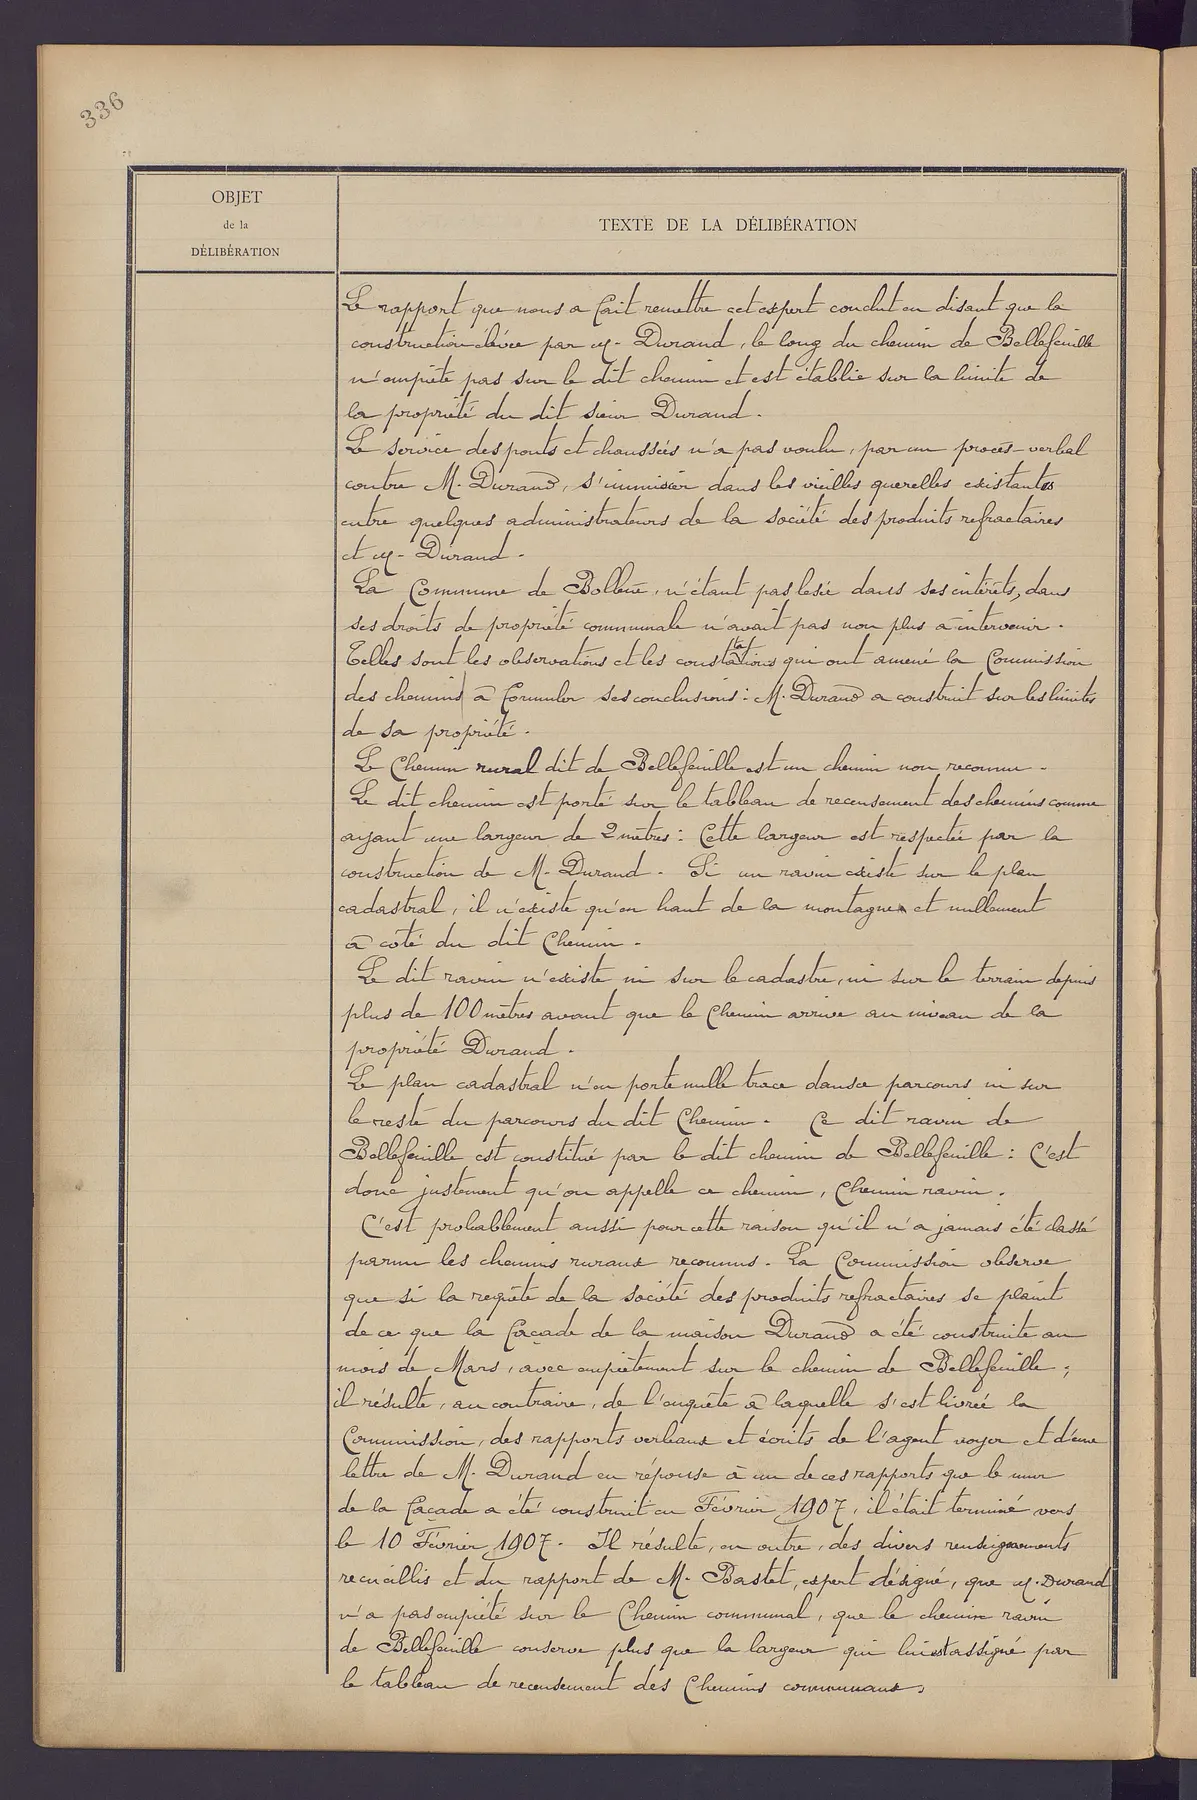 336
OBJET
de la
DÉLIBÉRATION
TEXTE DE LA DÉLIBÉRATION
Le rapport que nous a fait remettre cet expert conclut en disant que la
construction élévée par M. Durand, le long du chemin de Bellefeuille
n'empiète pas sur le dit chemin et est établie sur la limite de
la propriété du dit sieur Durand.
Le service des ponts et chaussées n'a pas voulu, par un procès-verbal
contre M. Durand, s'immiscer dans les vieilles querelles existantes
entre quelques administrateurs de la société des produits refractaires
et M. Durand.
La Commune de Bollène, n'étant pas lesée dans ses intérêts, dans
ses droits de propriété communale n'avait pas non plus à intervenir.
Telles sont les observations et les constatations qui ont amené la Commission
des chemins à formuler ses conclusions: M. Durand a construit sur les limites
de sa propriété.
Le Chemin rural dit de Bellefeuille est un chemin non reconnu.
Le dit chemin est porté sur le tableau de recensement des chemins comme
ayant une largeur de 2 mètres: Cette largeur est respectée par la
construction de M. Durand. Si un ravin existe sur le plan
cadastral, il n'existe qu'en haut de la montagne et nullement
à côté du dit Chemin.
Le dit ravin n'existe ni sur le cadastre, ni sur le terrain depuis
plus de 100 mètres avant que le Chemin arrive au niveau de la
propriété Durand.
Le plan cadastral n'en porte nulle trace dans ce parcours ni sur
le reste du parcours du dit Chemin. Ce dit ravin de
Bellefeuille est constitué par le dit chemin de Bellefeuille: C'est
donc justement qu'on appelle ce chemin, Chemin ravin.
C'est probablement aussi pour cette raison qu'il n'a jamais été classé
parmi les chemins ruraux reconnus. La Commission observe
que si la requête de la société des produits refractaires se plaint
de ce que la façade de la maison Durand a été construite au
mois de Mars, avec empiètement sur le chemin de Bellefeuille;
il résulte, au contraire, de l'enquête à laquelle s'est livrée la
Commission, des rapports verbaux et écrits de l'agent voyer et d'une
lettre de M. Durand en réponse à un de ces rapports que le mur
de la façade a été construit en Février 1907, il était terminé vers
le 10 Février 1907. Il résulte, en outre, des divers renseignements
recueillis et du rapport de M. Bastet, expert désigné, que M. Durand
n'a pas empiété sur le Chemin communal, que le chemin ravin
de Bellefeuille conserve plus que la largeur qui lui est assigné par
le tableau de recensement des Chemins communaux,